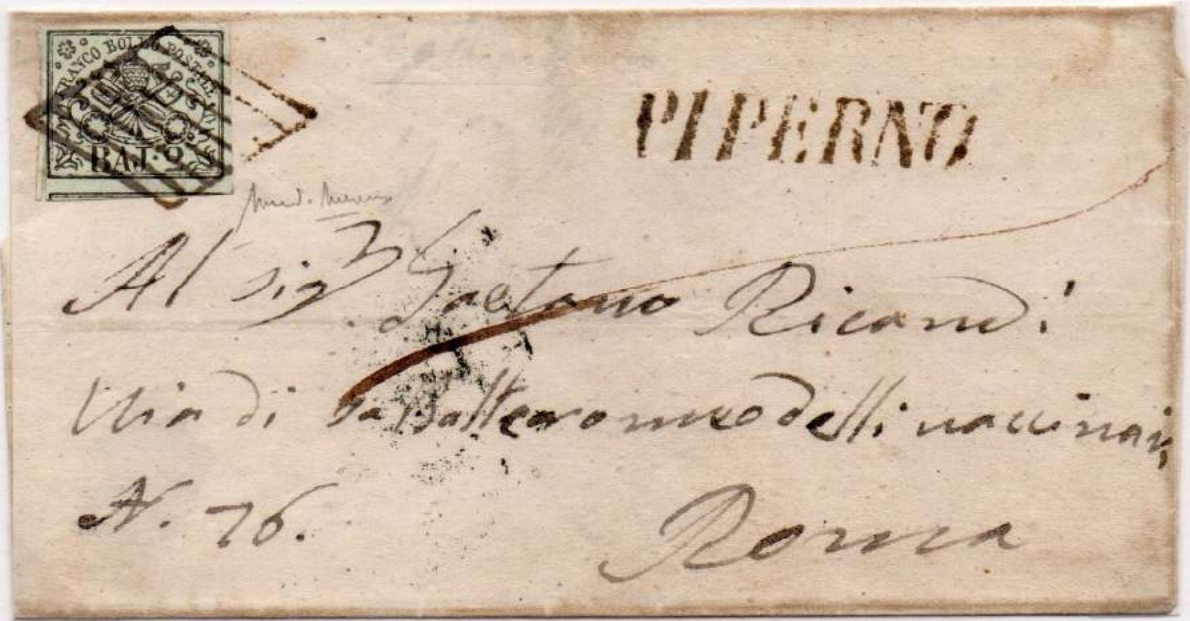 FRANCO BOLLO POSTALE
BAJ. 2
PIPERNO
Al sigr. Gaetano Ricardi
Via di Sa Balteromeo delli vaccinari
N. 76.
Roma